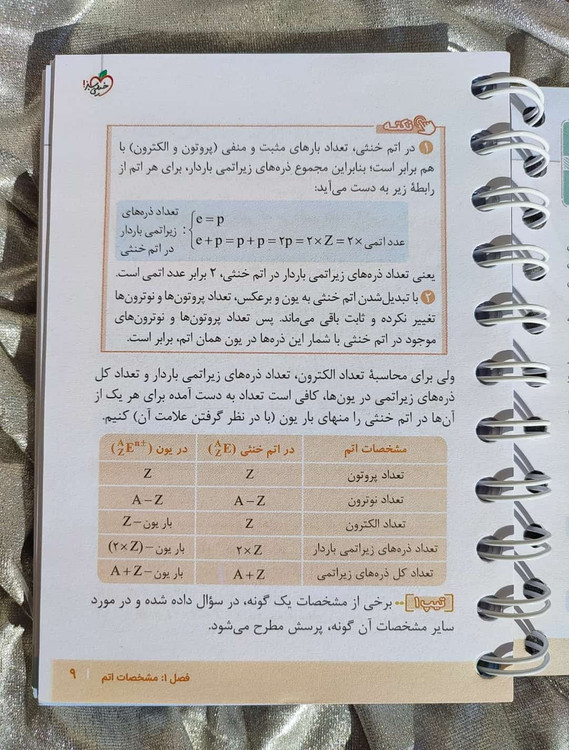 خیلی سبز
نکته
۱ در اتم خنثی، تعداد بارهای مثبت و منفی (پروتون و الکترون) با
هم برابر است؛ بنابراین مجموع ذره‌های زیراتمی باردار، برای هر اتم از
رابطهٔ زیر به دست می‌آید:
تعداد ذره‌های
زیراتمی باردار :
در اتم خنثی
e = p
e + p = p + p = ۲p = ۲×Z = ۲× عدد اتمی
یعنی تعداد ذره‌های زیراتمی باردار در اتم خنثی، ۲ برابر عدد اتمی است.
۲ با تبدیل‌شدن اتم خنثی به یون و برعکس، تعداد پروتون‌ها و نوترون‌ها
تغییر نکرده و ثابت باقی می‌ماند. پس تعداد پروتون‌ها و نوترون‌های
موجود در اتم خنثی با شمار این ذره‌ها در یون همان اتم، برابر است.
ولی برای محاسبهٔ تعداد الکترون، تعداد ذره‌های زیراتمی باردار و تعداد کل
ذره‌های زیراتمی در یون‌ها، کافی است تعداد به دست آمده برای هر یک از
آن‌ها در اتم خنثی را منهای بار یون (با در نظر گرفتن علامت آن) کنیم.
مشخصات اتم در اتم خنثی (ᴬ_ZE) در یون (ᴬ_ZEⁿ±)
تعداد پروتون Z Z
تعداد نوترون A−Z A−Z
تعداد الکترون Z بار یون−Z
تعداد ذره‌های زیراتمی باردار ۲×Z بار یون−(۲×Z)
تعداد کل ذره‌های زیراتمی A+Z بار یون−A+Z
تیپ ۱ برخی از مشخصات یک گونه، در سؤال داده شده و در مورد
سایر مشخصات آن گونه، پرسش مطرح می‌شود.
فصل ۱: مشخصات اتم ۹